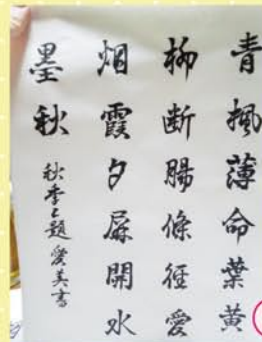 青楓薄命葉黄
柳断腸條径愛
烟霞夕屏開水
墨秋
秋季上題 愛美書